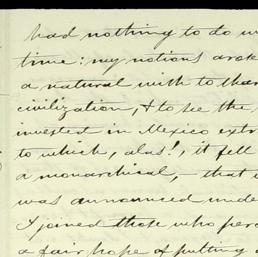 had nothing to do w
time: my notions
a natural with to than
civilization, & to see the
invested in Mexico extr
to which, alas!, it fell
a monarchical, — that
was announced unde
I joined those who per
a fair hope of putting